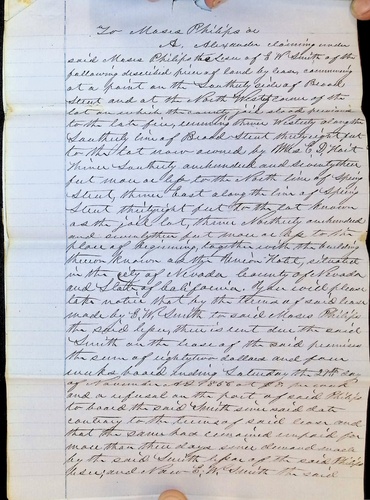 To Moses Philips or
A. Alexander claiming under
said Moses Philips the Lesee of E. W. Smith of the
following described piece of land by lease, commencing
at a point on the Southerly side of Broad
Street and at the North West corner of the
lot on which the
to the late fire, running thence Westerly along the
Southerly line of Broad Street thirty eight feet
to the lot now owned by Mrs. E.
thence Southerly one hundred and seventy three
feet more or less to the North line of Spring
Street, thence East along the line of Spring
Street thirty eight feet to the lot known
as the jail lot, thence Northerly one hundred
and seventy three feet more or less to the
place of beginning, together with the building
thereon known as the Union Hotel, situated
in the city of Nevada County of Nevada
and State of California. You will please
take notice that by the terms of said lease
made by E. W. Smith to said Moses Philips
the said lesee, there is rent due the said
Smith on the lease of the said premises
the sum of eighty two dollars and four
weeks board ending Saturday the
of November A.D. 1866 at per week
and a refusal on the part of said Philips
to board the said Smith since said date
contrary to the terms of said lease and
that the same has remained unpaid for
more than three days since demand made
by the said Smith of the said Philips
lesee, and Now E. W. Smith the said